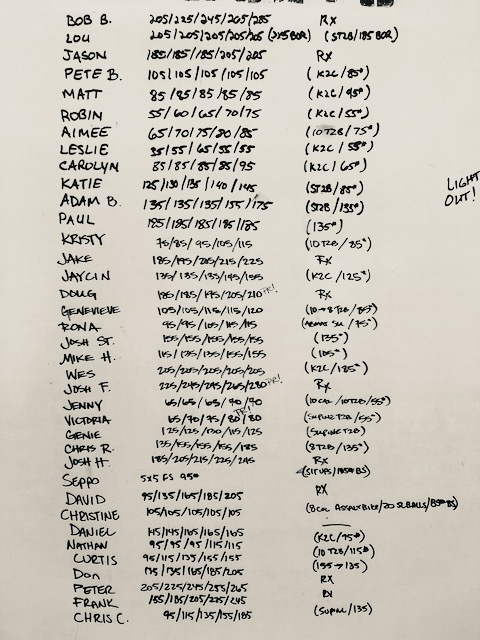 BOB B. 205/225/245/205/285 RX
LOU 205/205/205/205/205 (245 BOR) (ST2B/185 BOR)
JASON 185/185/185/205/205 RX
PETE B. 105/105/105/105/105 (K2C/85#)
MATT 85/85/85/85/85 (K2C/95#)
ROBIN 55/60/65/70/75 (K2C/55#)
AIMEE 65/70/75/80/85 (10T2B/75#)
LESLIE 35/55/65/55/55 (K2C/55#)
CAROLYN 85/85/85/85/95 (K2C/65#)
KATIE 125/130/135/140/145 (ST2B/85#)
LIGHT
OUT!
ADAM B. 135/135/135/155/175 (ST2B/135#)
PAUL 185/185/185/185/185 (135#)
KRISTY 75/85/95/105/115 (10T2B/85#)
JAKE 185/195/205/215/225 RX
JAYCIN 135/135/135/145/155 (K2C/125#)
DOUG 185/185/195/205/210 PR! RX
GENEVIEVE 105/105/115/115/120 (10→8T2B/85#)
RONA 95/95/105/115/115 /75#)
JOSH ST. 155/155/155/155/155 (135#)
MIKE H. 115/135/135/155/155 (105#)
WES 205/205/205/205/205 (K2C/185#)
JOSH F. 225/245/245/265/280 PR! RX
JENNY 65/65/65/70/70 (10 CAL/10T2B/55#)
VICTORIA 65/70/75/80/80 PR! (SUPINE T2B/55#)
GENIE 125/125/130/115/125 (SUPINE T2B)
CHRIS R. 135/155/155/155/185 (8T2B/135#)
JOSH H. 185/205/215/225/245 RX
SEPPO 5x5 FS 95# (SIT UPS/ BS)
DAVID 95/135/165/185/205 RX
CHRISTINE 105/105/105/105/105 (8CAL ASSAULT BIKE/20 SLBALLS/ BS)
DANIEL 145/145/165/165/165
NATHAN 95/95/95/115/115 (K2C/75#)
CURTIS 95/115/135/155/155 (10T2B/115#)
DON 135/135/165/185/205 (155→135)
PETER 205/225/245/255/265 RX
FRANK 155/185/205/225/245 RX
CHRIS C. 95/115/135/155/185 (SUPINE/135)